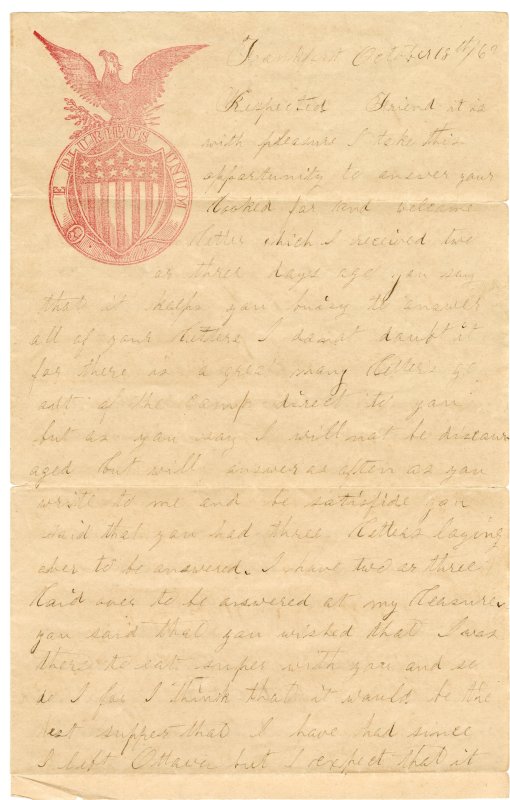 E PLURIBUS UNUM
Frankfort October 18th/62
Respected Friend it is
with pleasure I take this
opportunity to answer your
looked for and welcome
Letter which I received two
or three days ago you say
that it keeps you buisy to answer
all of your Letters I donot doubt it
for there is a great many Letters go
out of the camp direct to you
but as you say I will not be discour
aged but will answer as often as you
write to me and be satisfide you
said that you had three Letters laying
over to be answered. I have two or three
Laid over to be answered at my Leasure.
you said that you wished that I was
there to eat super with you and so
do I for I think that it would be the
best supper that I have had since
I left Ottawa but I expect that it